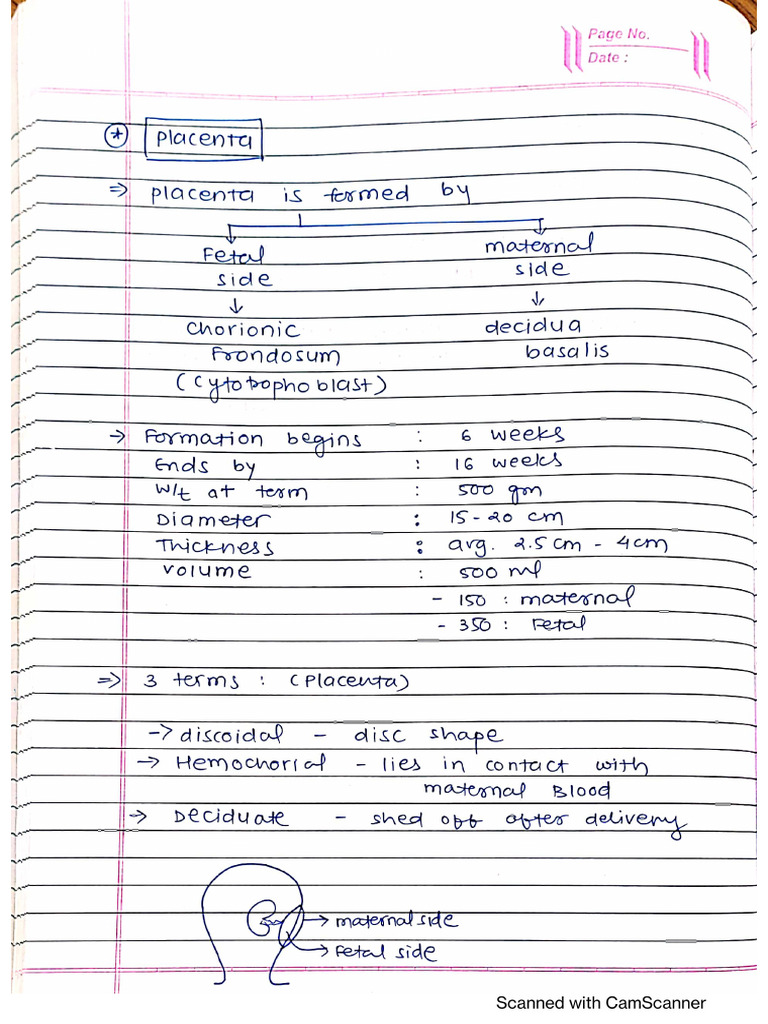 Page No.
Date :
* Placenta
⇒ Placenta is formed by
Fetal side
maternal side
↓ ↓
Chorionic Frondosum
(Cytotophoblast)
decidua basalis
→ Formation begins : 6 weeks
Ends by : 16 weeks
W/t at term : 500 gm
Diameter : 15-20 cm
Thickness : avg. 2.5cm - 4cm
volume : 500 ml
- 150 : maternal
- 350 : Fetal
⇒ 3 terms : (Placenta)
→ discoidal - disc shape
→ Hemochorial - lies in contact with
maternal Blood
→ Deciduate - shed off after delivery
→ maternal side
→ Fetal side
Scanned with CamScanner